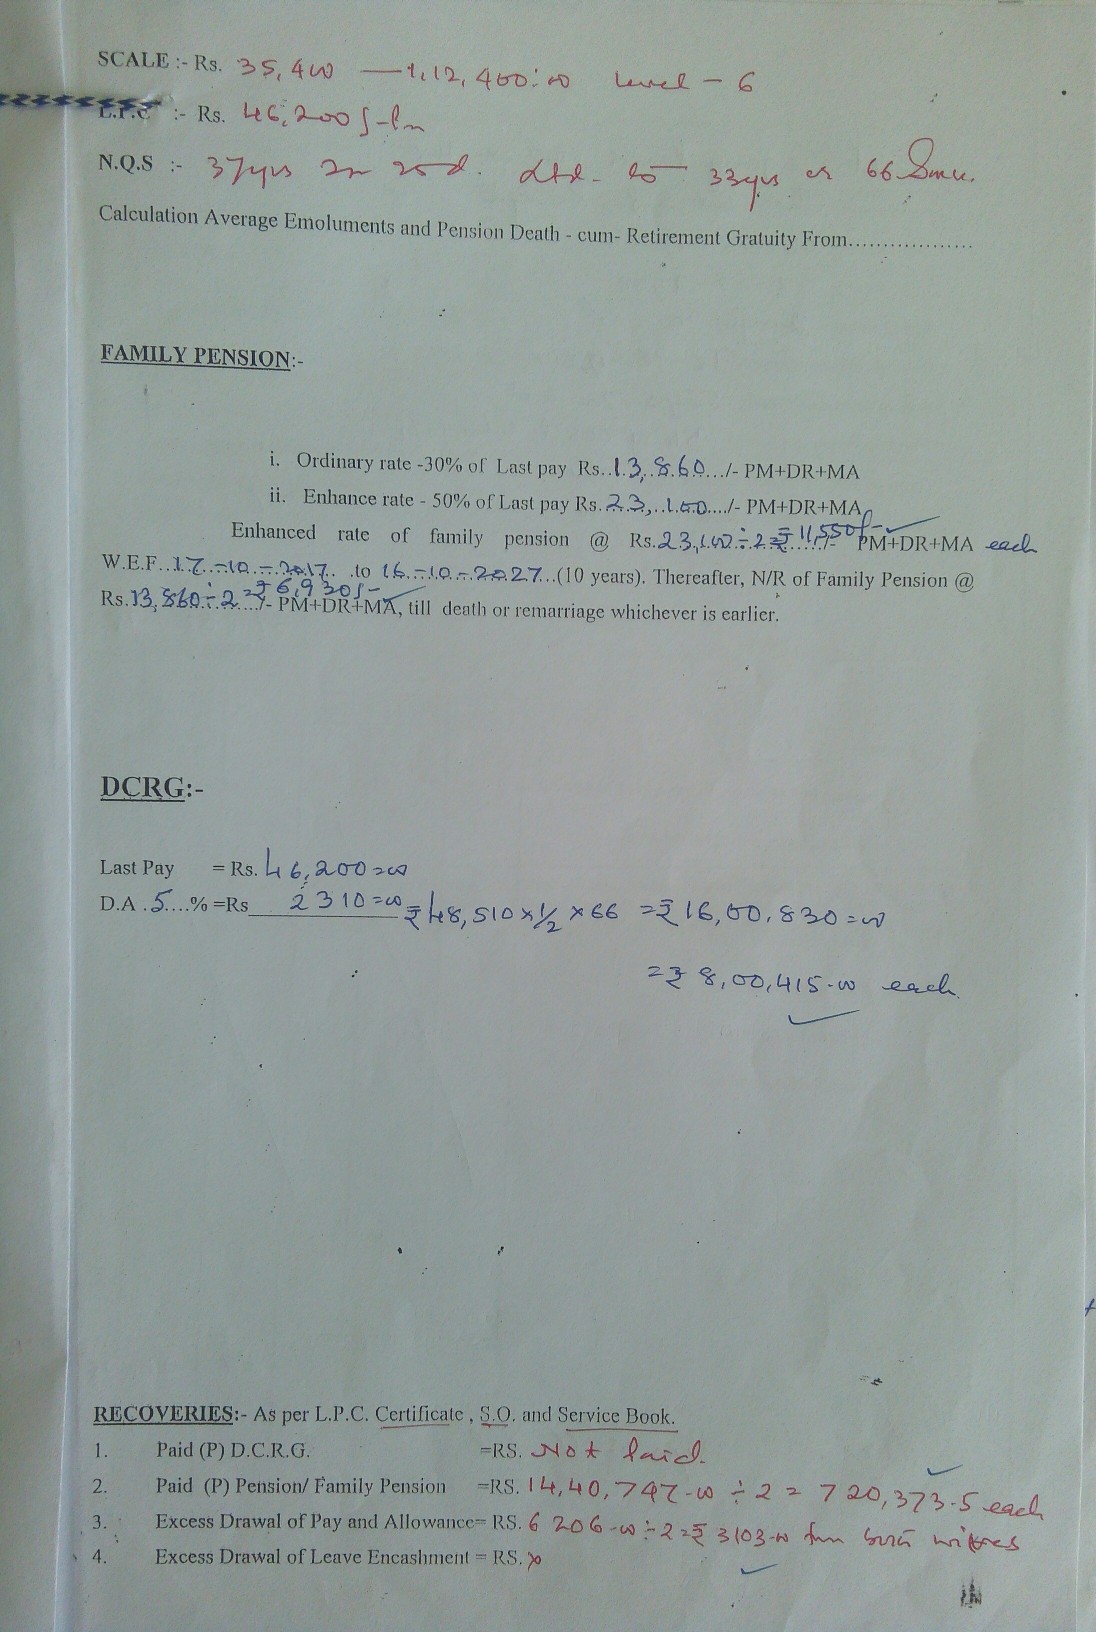 SCALE :- Rs. 35,400 — 1,12,400:00 Level - 6
L.P.C :- Rs. 46,200/-
N.Q.S :- 37yrs 2m 20d. to 33yrs or 66
Calculation Average Emoluments and Pension Death - cum- Retirement Gratuity From...................
FAMILY PENSION:-
i. Ordinary rate -30% of Last pay Rs..13,860.../- PM+DR+MA
ii. Enhance rate - 50% of Last pay Rs.23,100..../- PM+DR+MA
Enhanced rate of family pension @ Rs.23,100÷2=₹11,550/- PM+DR+MA each
W.E.F..17.-10.-2017. .to 16.-10.-2027...(10 years). Thereafter, N/R of Family Pension @
Rs.13,860÷2=₹6,930/- PM+DR+MA, till death or remarriage whichever is earlier.
DCRG:-
Last Pay = Rs. 46,200=00
D.A .5....% =Rs 2310=00 ₹48,510×1/2×66 =₹16,00,830=00
=₹8,00,415-00 each
RECOVERIES:- As per L.P.C. Certificate , S.O. and Service Book.
1. Paid (P) D.C.R.G. =RS. Not Paid.
2. Paid (P) Pension/ Family Pension =RS. 14,40,747-00 ÷ 2 = 720,373-5 each
3. Excess Drawal of Pay and Allowance= RS. 6206-00÷2=₹3103-00 from both
4. Excess Drawal of Leave Encashment = RS. x